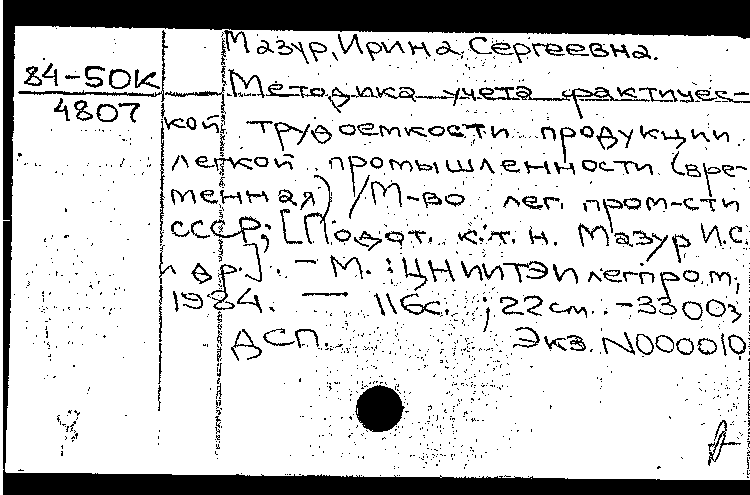 Мазур, Ирина Сергеевна.
84-50К
4807
Методика учета фактичес-
кой трудоемкости продукции
легкой промышленности (вре-
менная) / М-во лег. пром-сти
СССР; [Подгот. к.т.н. Мазур И.С.
и др.]. - М. : ЦНИИТЭИлегпром,
1984. — 116с. ; 22см. - 3300э
ДСП. Экз. N000010